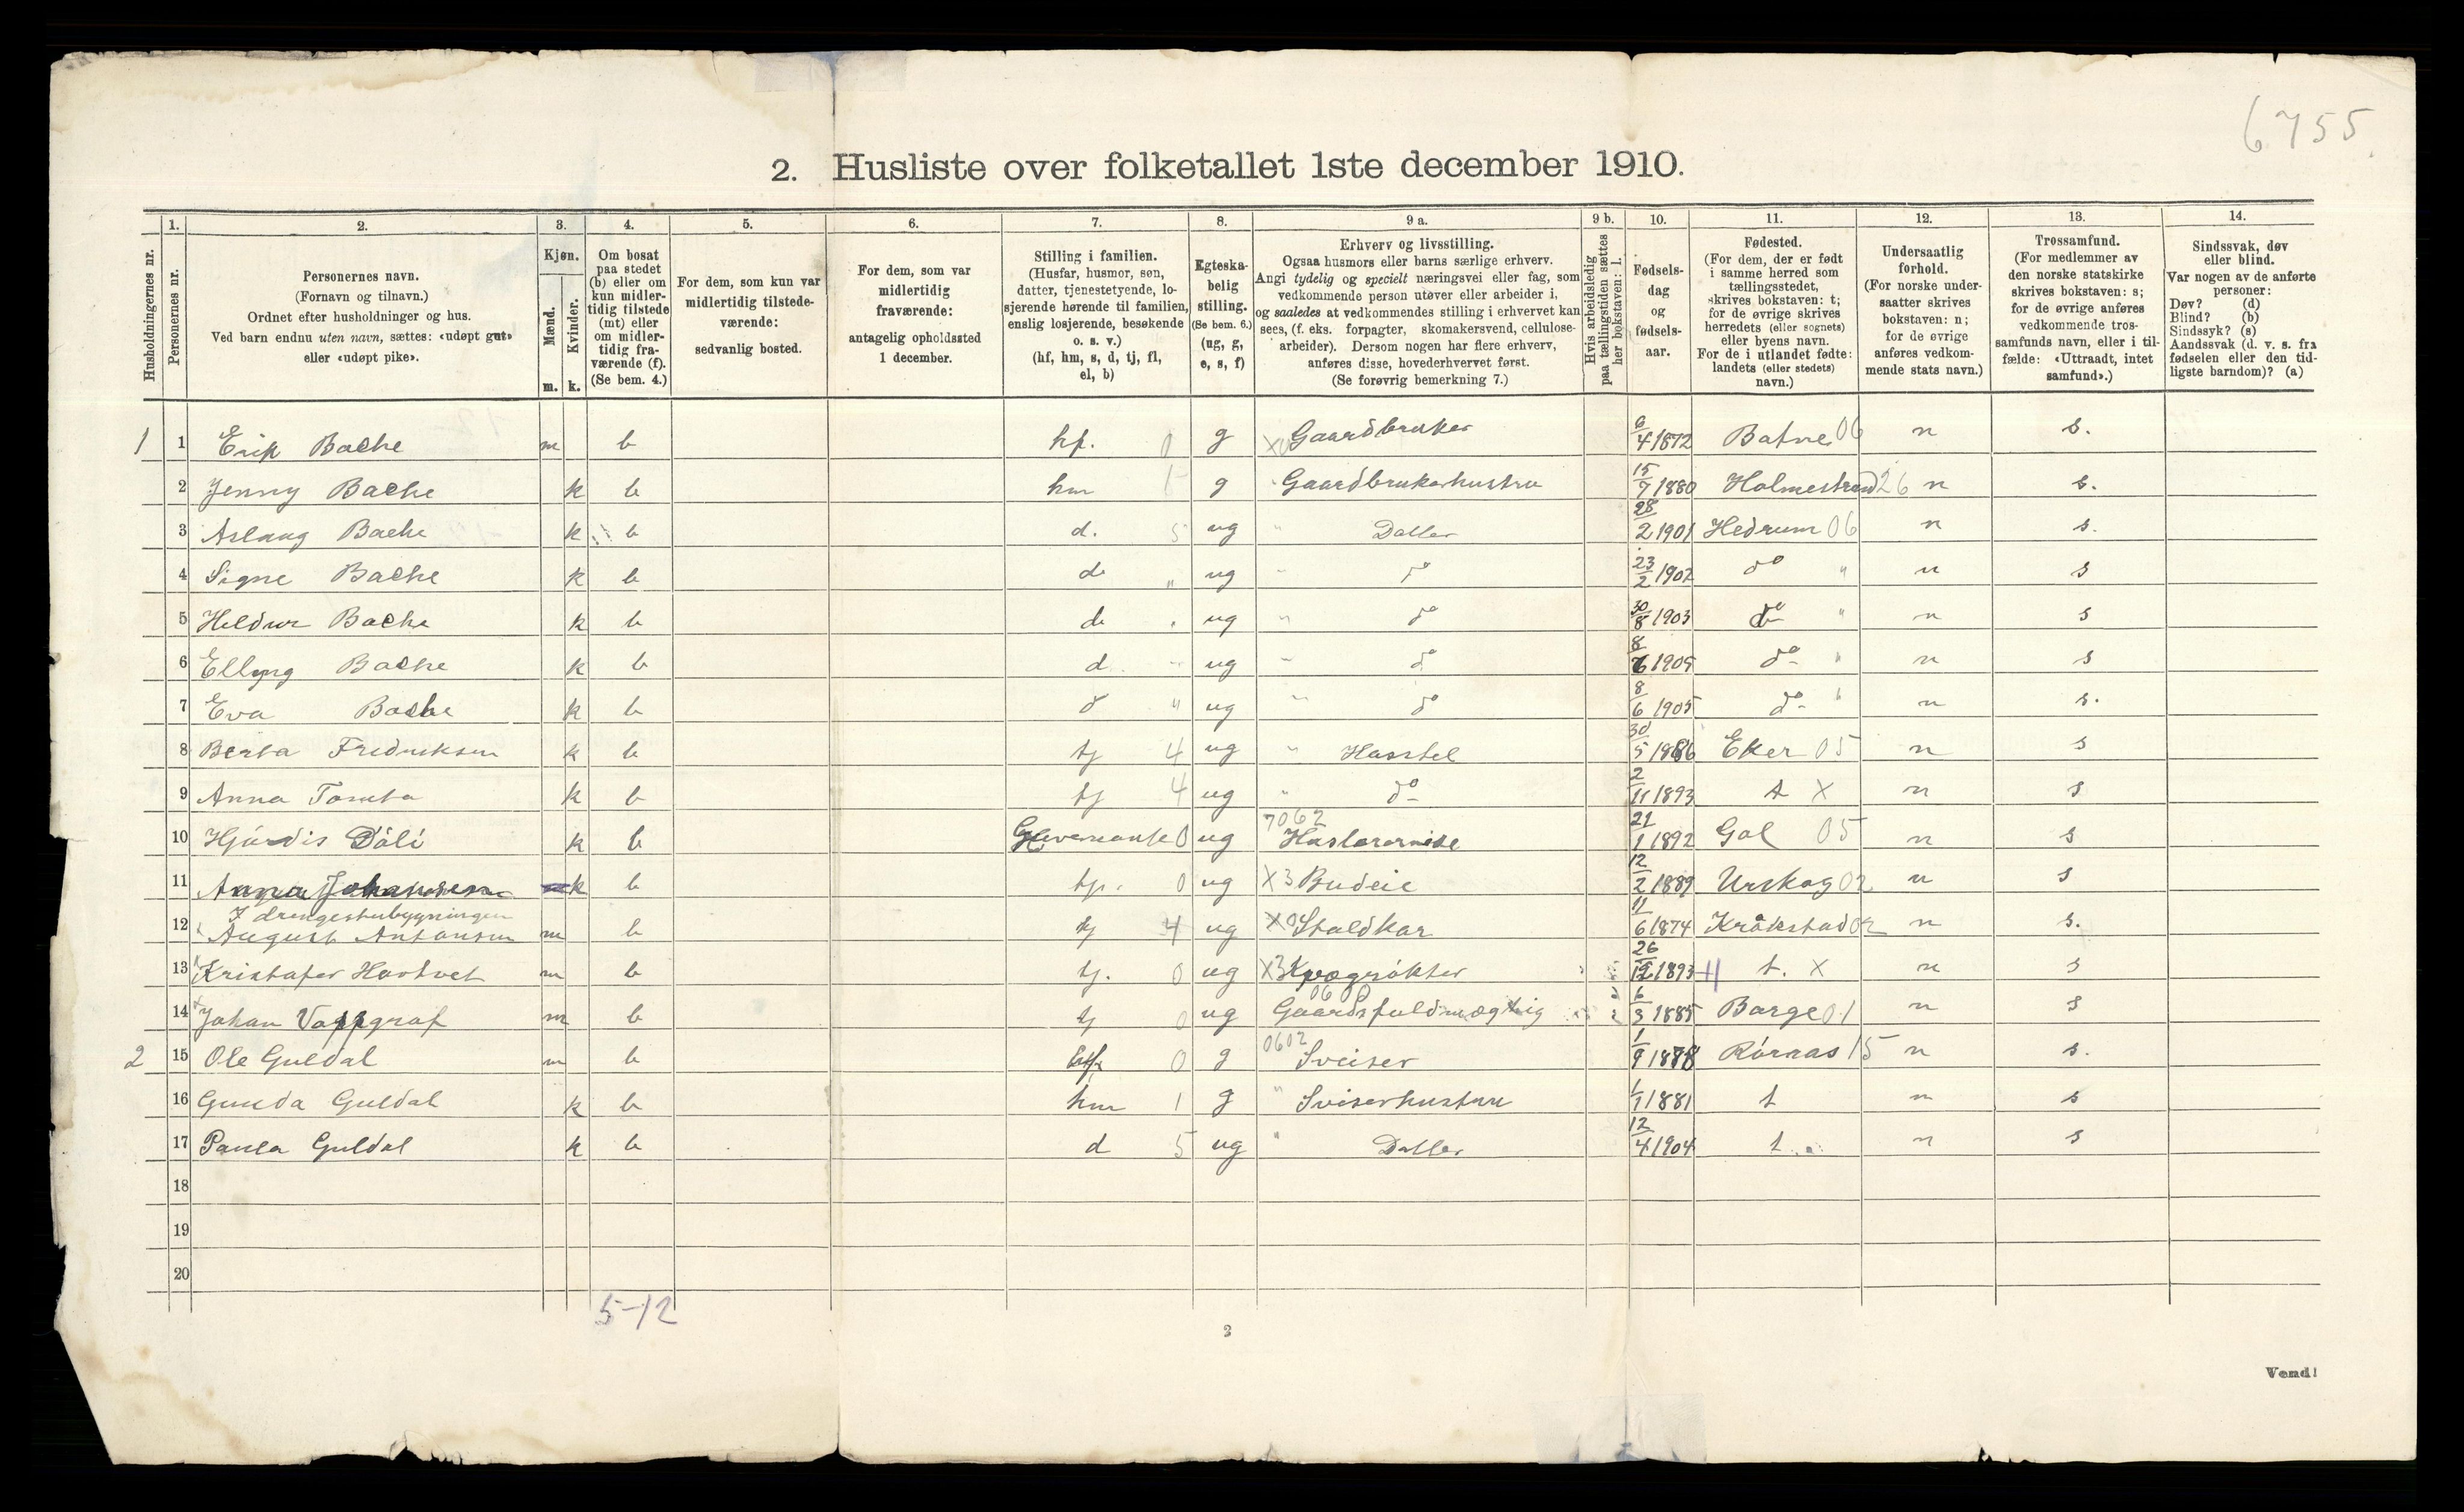 6755
2. Husliste over folketallet 1ste december 1910.
Husholdningernes nr.
1. Personernes nr.
2. Personernes navn.
(Fornavn og tilnavn.)
Ordnet efter husholdninger og hus.
Ved barn endnu uten navn, sættes: «udøpt gut»
eller «udøpt pike».
3. Kjøn.
Mænd. m.
Kvinder. k.
4. Om bosat
paa stedet
(b) eller om
kun midler-
tidig tilstede
(mt) eller
om midler-
tidig fra-
værende (f).
(Se bem. 4.)
5. For dem, som kun var
midlertidig tilstede-
værende:
sedvanlig bosted.
6. For dem, som var
midlertidig
fraværende:
antagelig opholdssted
1 december.
7. Stilling i familien.
(Husfar, husmor, søn,
datter, tjenestetyende, lo-
sjerende hørende til familien,
enslig losjerende, besøkende
o. s. v.)
(hf, hm, s, d, tj, fl,
el, b)
8. Egteska-
belig
stilling.
(Se bem. 6.)
(ug, g,
e, s, f)
9 a. Erhverv og livsstilling.
Ogsaa husmors eller barns særlige erhverv.
Angi tydelig og specielt næringsvei eller fag, som
vedkommende person utøver eller arbeider i,
og saaledes at vedkommendes stilling i erhvervet kan
sees, (f. eks. forpagter, skomakersvend, cellulose-
arbeider). Dersom nogen har flere erhverv,
anføres disse, hovederhvervet først.
(Se forøvrig bemerkning 7.)
9 b. Hvis arbeidsledig
paa tællingstiden sættes
her bokstaven: l.
10. Fødsels-
dag
og
fødsels-
aar.
11. Fødested.
(For dem, der er født
i samme herred som
tællingsstedet,
skrives bokstaven: t;
for de øvrige skrives
herredets (eller sognets)
eller byens navn.
For de i utlandet fødte:
landets (eller stedets)
navn.)
12. Undersaatlig
forhold.
(For norske under-
saatter skrives
bokstaven: n;
for de øvrige
anføres vedkom-
mende stats navn.)
13. Trossamfund.
(For medlemmer av
den norske statskirke
skrives bokstaven: s;
for de øvrige anføres
vedkommende tros-
samfunds navn, eller i til-
fælde: «Uttraadt, intet
samfund».)
14. Sindssvak, døv
eller blind.
Var nogen av de anførte
personer:
Døv? (d)
Blind? (b)
Sindssyk? (s)
Aandssvak (d. v. s. fra
fødselen eller den tid-
ligste barndom)? (a)
1 1 Erik Bache m b hf. 0 g Gaardbruker 6/4 1872 Botne 06 n s.
2 Jenny Bache k b hm 1 g Gaardbrukerhustru 15/7 1880 Holmestrand 26 n s.
3 Aslaug Bache k b d. 5 ug " Datter 28/2 1901 Hedrum 06 n s.
4 Signe Bache k b d " ug " do 23/2 1902 do " n s
5 Hildur Bache k b d " ug " do 30/8 1903 do " n s
6 Bache k b d " ug " do 8/6 1905 do " n s
7 Eva Bache k b d " ug " do 8/6 1905 do " n s.
8 Berta Fredriksen k b tj 4 ug " 30/5 1886 Eker 05 n s
9 Anna Tomta k b tj 4 ug " do 2/11 1893 t X n s
10 Hjørdis Døli k b 0 ug 7062 21/1 1892 Gol 05 n s
11 Anna Johansen k b tj. 0 ug X3 Budeie 12/2 1889 Urskog 02 n s
I drengestubygningen
12 August Antonsen m b tj 4 ug X0 Staldkar 11/6 1874 Kråkstad 02 n s.
13 Kristofer Hartvet m b tj. 0 ug X3 Kvægrøkter 26/12 1893 t. X n s
14 Johan m b tj 0 ug 0600 Gaardsfuldmægtig 6/3 1885 Borge 01 n s
2 15 Ole Guldal m b hf 0 g 0602 Sveiser 1/9 1878 Røraas 15 n s.
16 Gunda Guldal k b hm 1 g " Sveiserhustru 1/1 1881 t n s
17 Paula Guldal k b d 5 ug " Datter 12/4 1904 t n s
18
19
20
5-12
2
Vend!